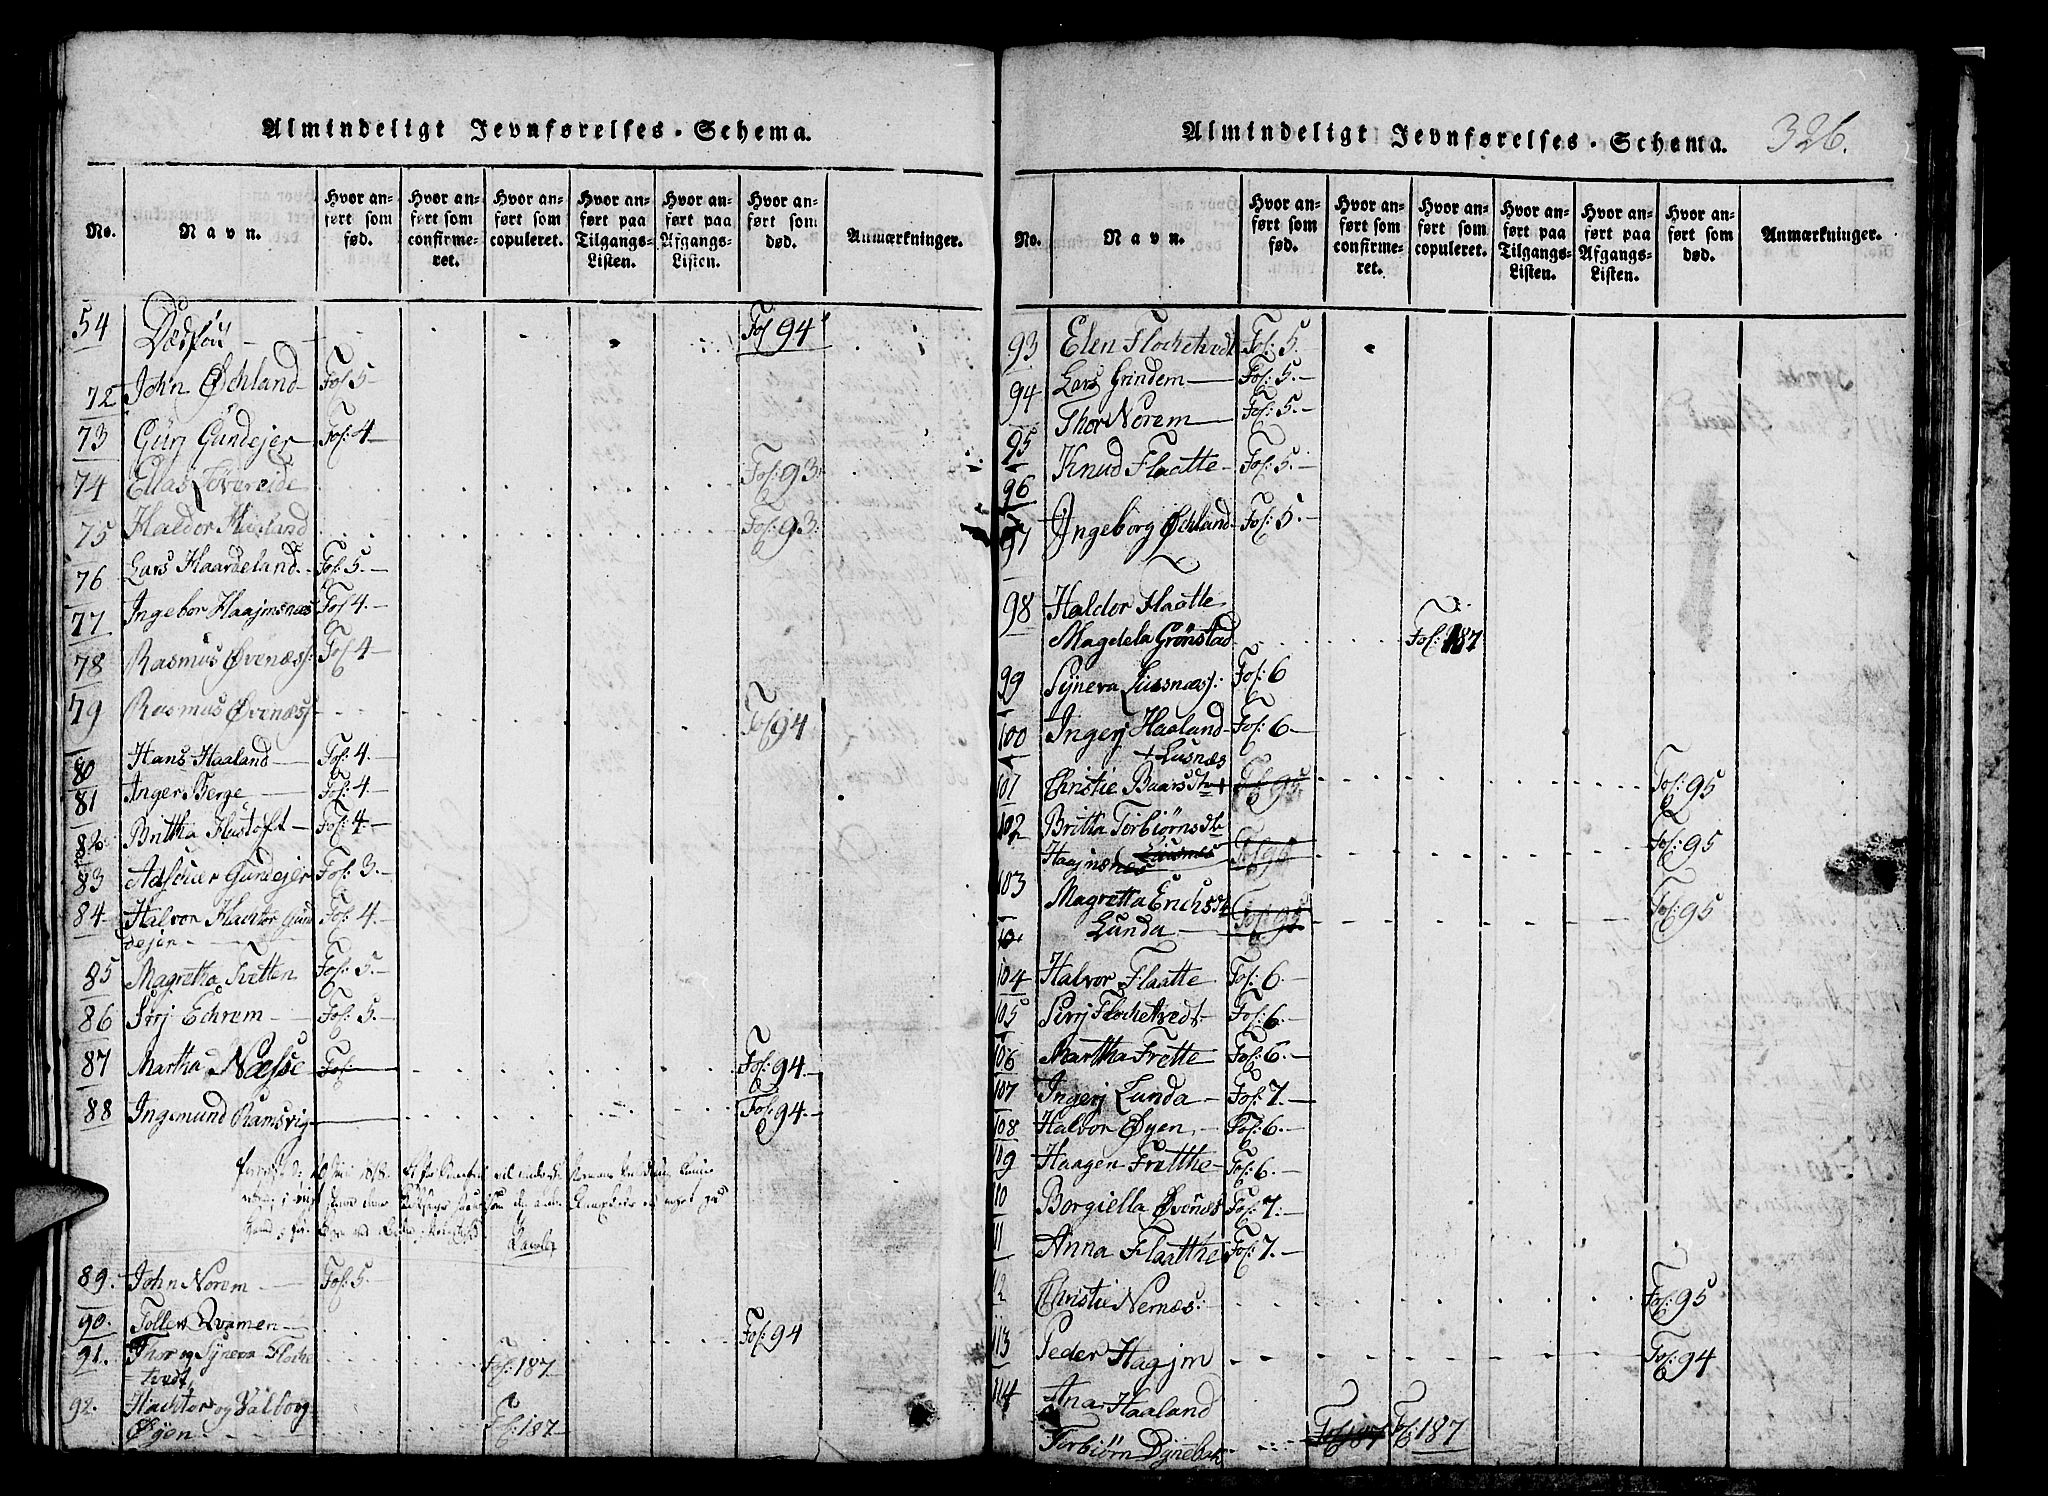 Almindeligt Jevnførelses-Schema.
No.
Navn.
Hvor anført som fød.
Hvor anført som confirmeret.
Hvor anført som copuleret.
Hvor anført paa Tilgangs-Listen.
Hvor anført paa Afgangs-Listen.
Hvor anført som død.
Anmærkninger.
54 Fol 94
72 John Øchland Fol 5
73 Gurj Gundejer Fol: 4
74 Elias Føvereide Fol: 93
75 Haldor Haaland Fol: 93
76 Lars Haardeland Fol: 5
77 Ingebor Haajmsnæs Fol 4
78 Rasmus Øvenæss: Fol 4
79 Rasmus Øvenæss Fol 94
80 Hans Haaland Fol: 4
81 Inger Berge Fol: 4
82 Brittha Hustoft Fol: 4
83 Adschier Gundejer Fol: 3
84 Halvor Hachtor Gun
dejer Fol: 4
85 Magretha Tvetten Fol: 5
86 Sirj Echrem Fol: 5
87 Martha Næsse Fol: Fol: 94
88 Ingemund Ramsvig Fol: 94
89. John Norem Fol: 5
90. Tollew Qvamen Fol: 94
91. Thor og Syneva Floche
tvedt Fol: 187
92. Hachtor og Valborg
Øyen Fol: 187
Almindeligt Jevnførelses-Schema. 326.
No.
Navn.
Hvor anført som fød.
Hvor anført som confirmeret.
Hvor anført som copuleret.
Hvor anført paa Tilgangs-Listen.
Hvor anført paa Afgangs-Listen.
Hvor anført som død.
Anmærkninger.
93 Elen Flochetvedt Fol: 5.
94 Lars Grindem Fol: 5.
95 Thor Norem Fol: 5.
96 Knud Flaatte Fol: 5.
97 Ingeborg Øchland Fol: 5.
98 Haldor Flaatte
Magdela Grønstad Fol: 187
99 Syneva Lussnæss: Fol: 6
100 Ingerj Haaland Fol: 6
+ Lusnæs
101 Christie Baarsdtr + Fol: 95 Fol: 95
102 Britta Torbiørnsdtr Fol: 95
Haajmsnæs Lusnæs Fol 95
103 Magretta Erichsdtr Fol: 95
Lunda Fol 95
104 Halvor Flaatte Fol: 6
105 Sirrj Flochetvedt Fol: 6.
106 Martha Frette Fol: 6.
107 Ingerj Lunda Fol: 7.
108 Halvor Øyen Fol: 6.
109 Haagen Fretthe Fol: 6.
110 Borgiella Øvenæs Fol: 7.
11 Anna Flaatthe Fol: 7.
12 Christie Nernæs: Fol: 95
113 Peder Hagjm Fol: 94
114 Ana Haaland
Torbiörn Dyneback Fol 187 Fol: 187